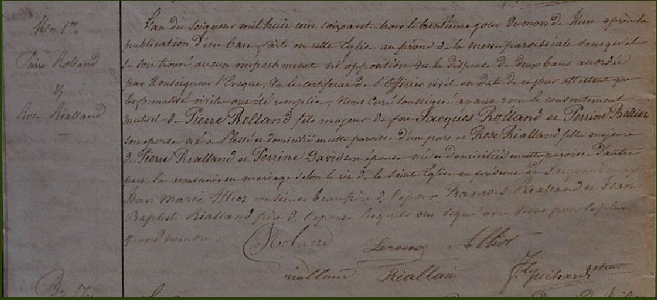 M. 1re
Pierre Rolland
&
Rose Rialland
L'an du seigneur mil huit cent soixante trois le trentième jour du mois de Juin après la
publication d'un ban faite en cette Eglise au prône de la messe paroissiale sans qu'il
se soit trouvé aucun empêchement ni opposition vu la dispense de deux bans accordée
par Monseigneur l'Evêque, Vu le certificat de l'Officier civil en date de ce jour attestant que
les formalités civiles ont été remplies, Nous Curé soussigné avons reçu le consentement
mutuel de Pierre Rolland fils majeur de feu Jacques Rolland et Perrine Bellier
son épouse né à et domicilié en cette paroisse d'une part et Rose Rialland fille majeure
de Pierre Rialland et Perrine David son épouse née et domiciliée en cette paroisse d'autre
part, en mariage selon le rit de la Sainte Eglise en présence de
Jean Marie beau frère de l'époux Rialland et Jean
Baptiste Rialland père de l'épouse lesquels ont signé avec Nous
quand
Roland Athot
rialland Rialland J. Guihard recteur